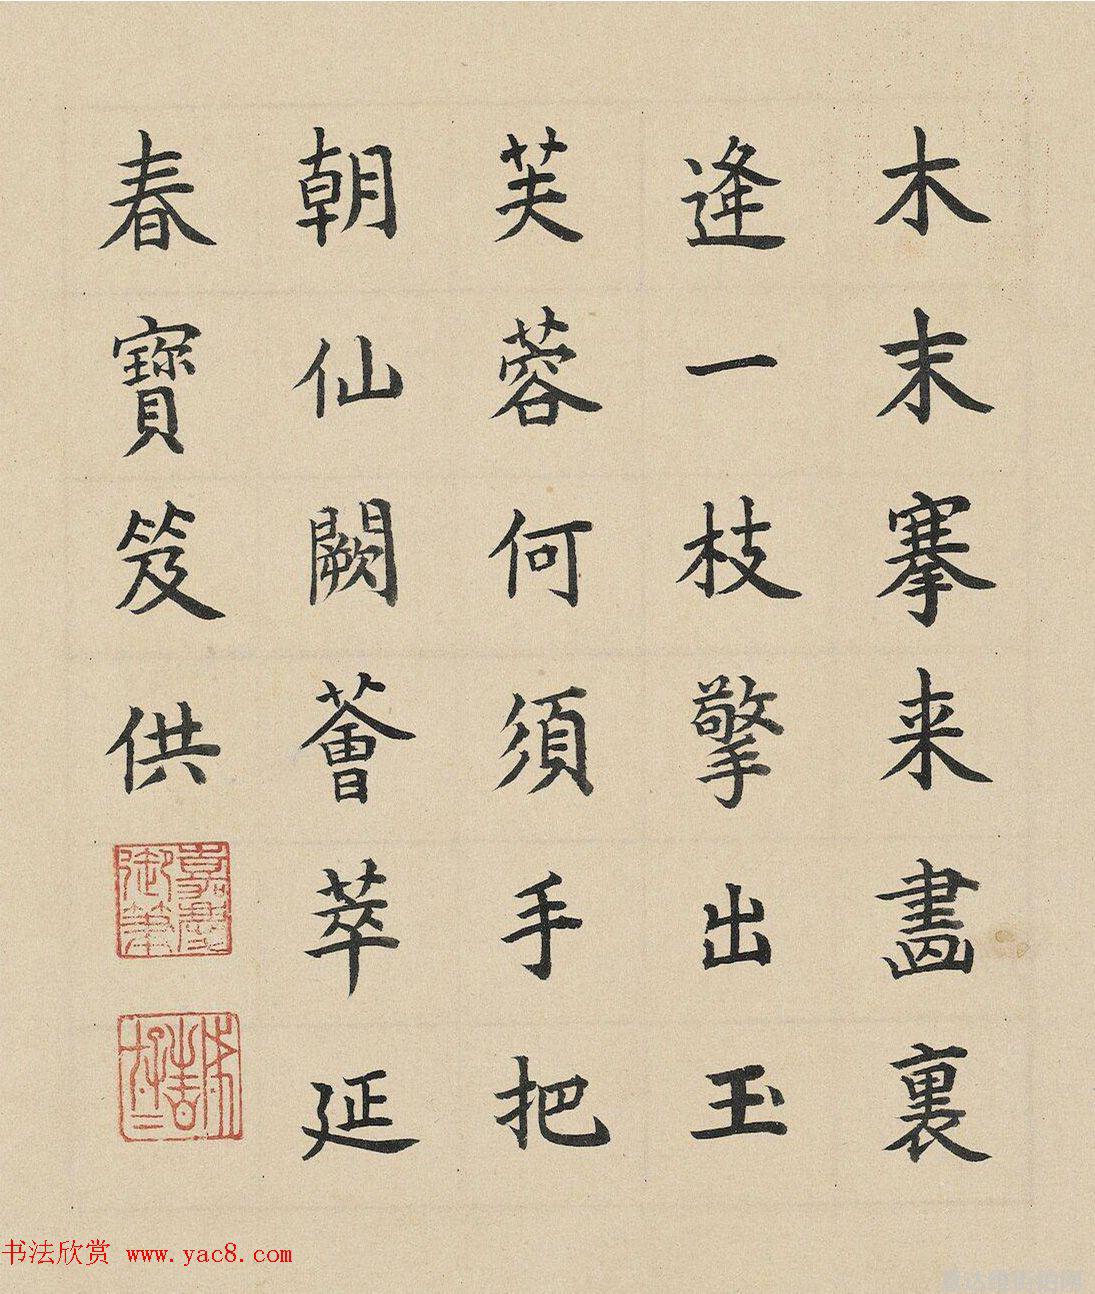 木末搴来畫裏
逢一枝擎出玉
芙蓉何須手把
朝仙闕薈萃延
春寶笈供
嘉慶
御筆
书法欣赏 www.yac8.com